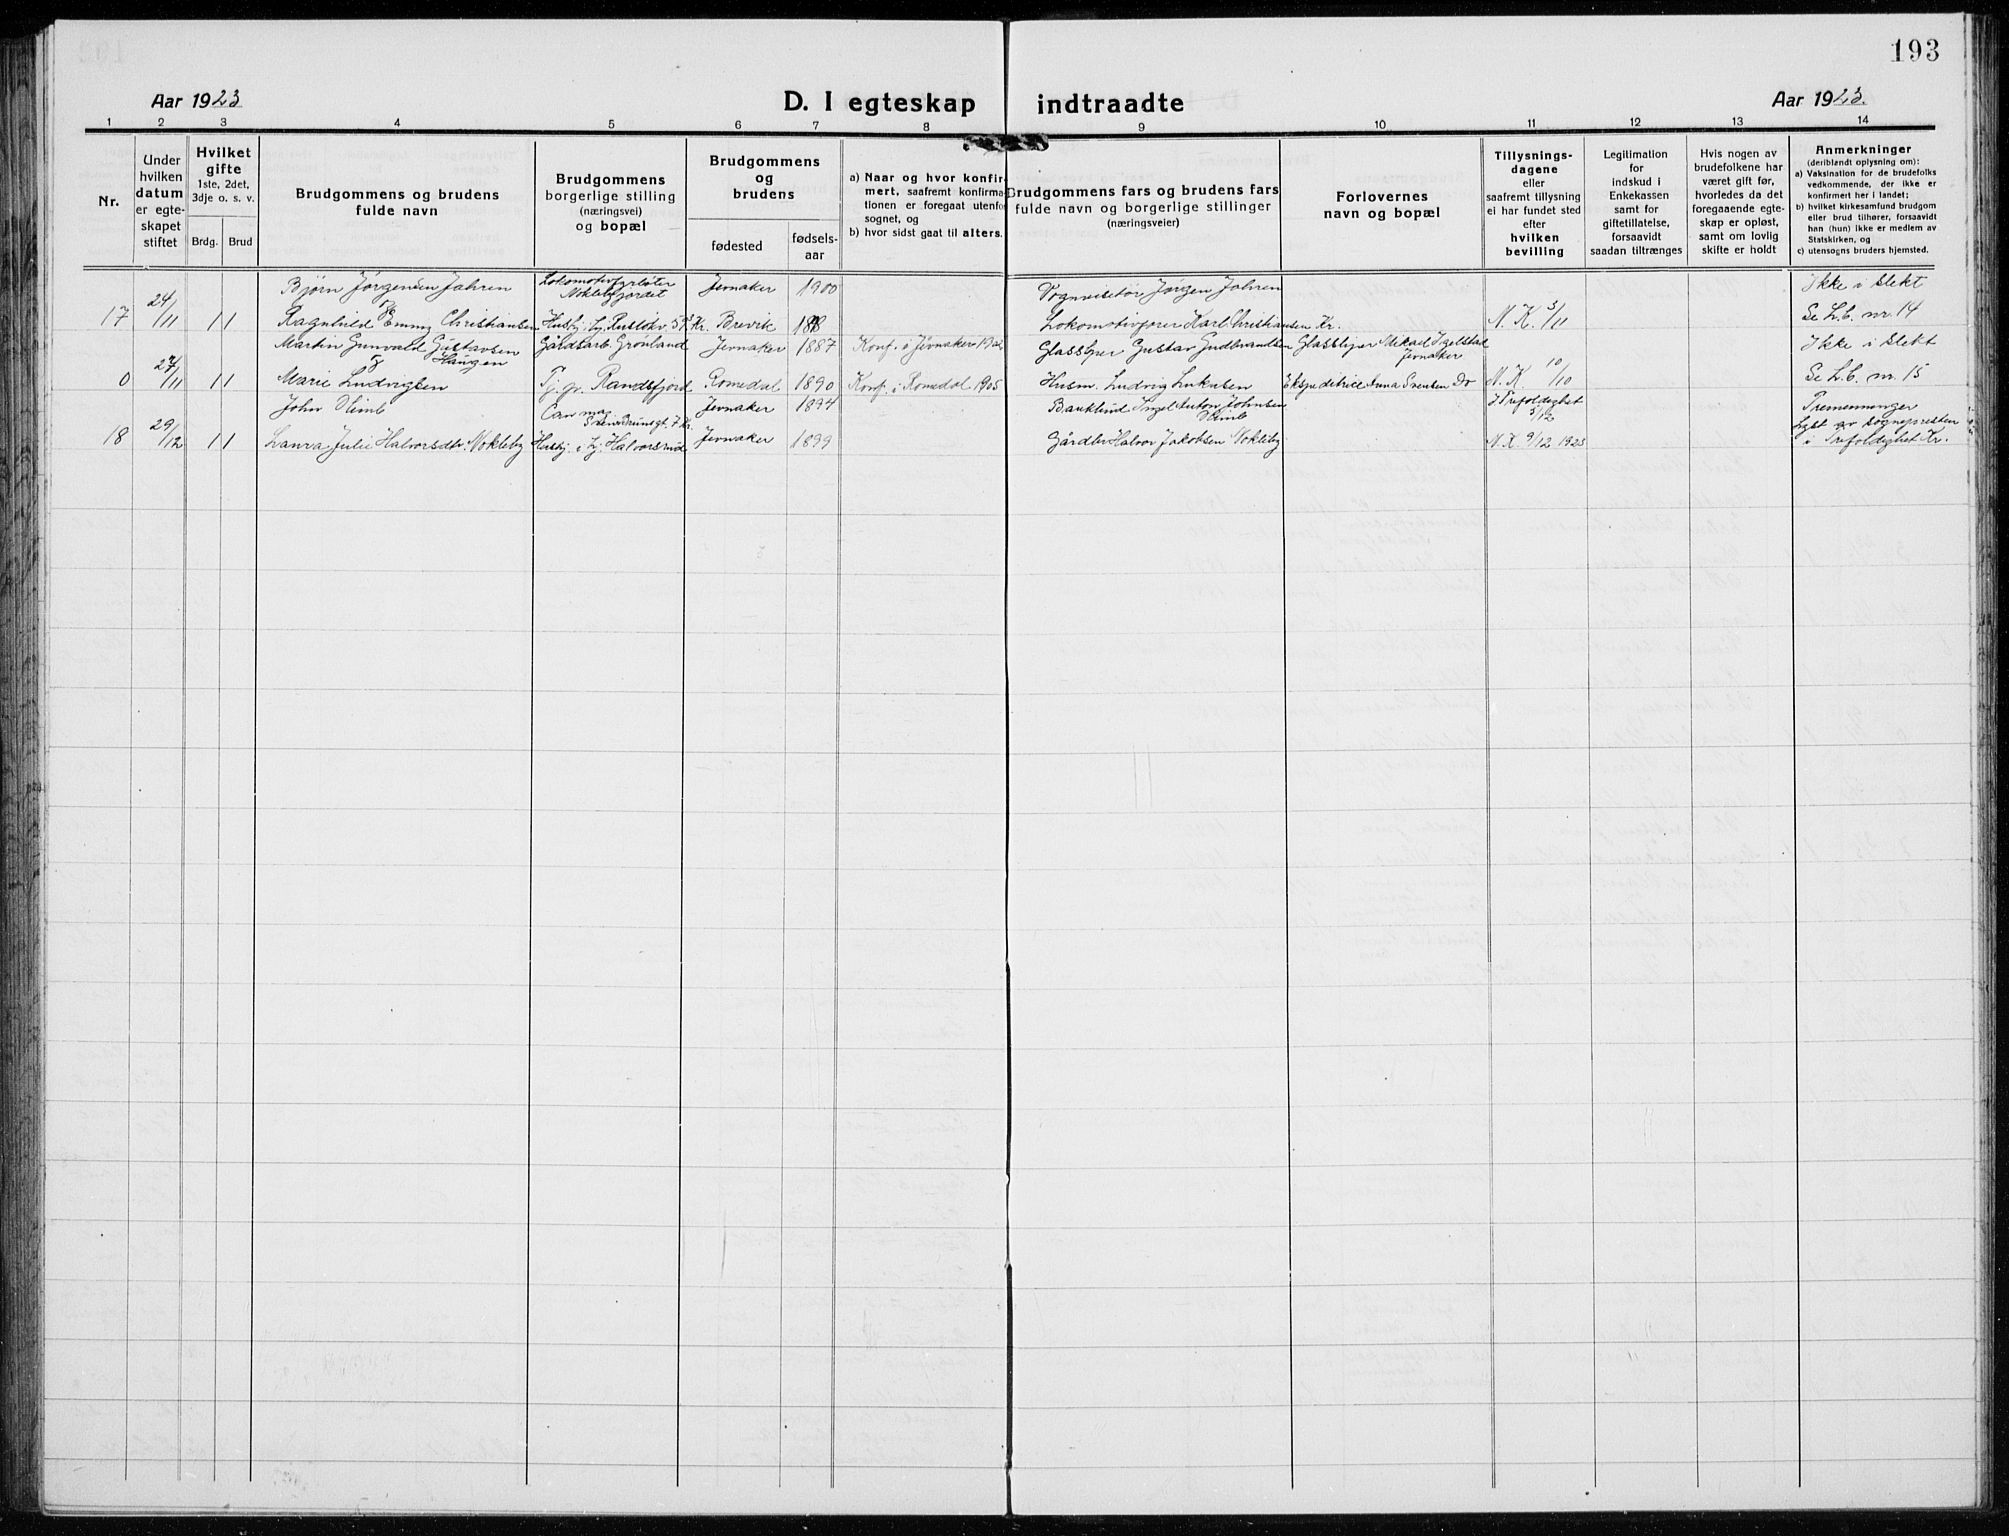 193
Aar 1923
D. I egteskap indtraadte
Aar 1923.
1 2 3 4 5 6 7 8 9 10 11 12 13 14
Nr.
Under hvilken datum er egteskapet stiftet
Hvilket gifte
1ste, 2det, 3dje o. s. v.
Brdg. Brud
Brudgommens og brudens fulde navn
Brudgommens borgerlige stilling (næringsvei) og bopæl
Brudgommens og brudens
fødested
fødsels-aar
a) Naar og hvor konfirmert, saafremt konfirmationen er foregaat utenfor sognet, og
b) hvor sidst gaat til alters.
Brudgommens fars og brudens fars fulde navn og borgerlige stillinger (næringsveier)
Forlovernes navn og bopæl
Tillysnings-dagene eller saafremt tillysning ei har fundet sted efter hvilken bevilling
Legitimation for indskud i Enkekassen samt for giftetillatelse, forsaavidt saadan tiltrænges
Hvis nogen av brudefolkene har været gift før, hvorledes da det foregaaende egteskap er opløst, samt om lovlig skifte er holdt
Anmerkninger
(deriblandt oplysning om):
a) Vaksination for de brudefolks vedkommende, der ikke er konfirmert her i landet;
b) hvilket kirkesamfund brudgom eller brud tilhører, forsaavidt han (hun) ikke er medlem av Statskirken, og
c) utensogns bruders hjemsted.
Bjørn Jørgensen Jahren Jevnaker 1900 Vognvisitør Jørgen Jahren Ikke i slekt
17 24/11 1 1 Ragnhild Emmy Christiansen Kr. Brevik Lokomotivfører Karl Christiansen Kr. N. K. 3/11 Se L.b. nr. 14
Martin Gunvald Gustavsen Haugen Gårdsarb. Grønland Jevnaker 1887 Konf. i Jevnaker Glassliper Gustav Gudbrandsen Glassliper Mikael Igelstad Jevnaker Ikke i slekt
0 27/11 1 1 Marie Ludvigsen Randsfjord Romedal 1890 Konf. i Romedal 1905 Husm. Ludvig Lukasen Ekspeditrice Anna Svensen Do N. K. 10/10 Se L.b. nr. 15
John Jevnaker 1894 Johnsen I Trefoldighet 5/12 Tremenninger
18 29/12 1 1 Laura Julie Halvorsdtr. Mokleby Husbj. i Lj. Halvorsrud Jevnaker 1899 Gårdbr Halvor Jakobsen Mokleby N. K. 9/12 1923 Lyst av sognepresten i Trefoldighet Kr.